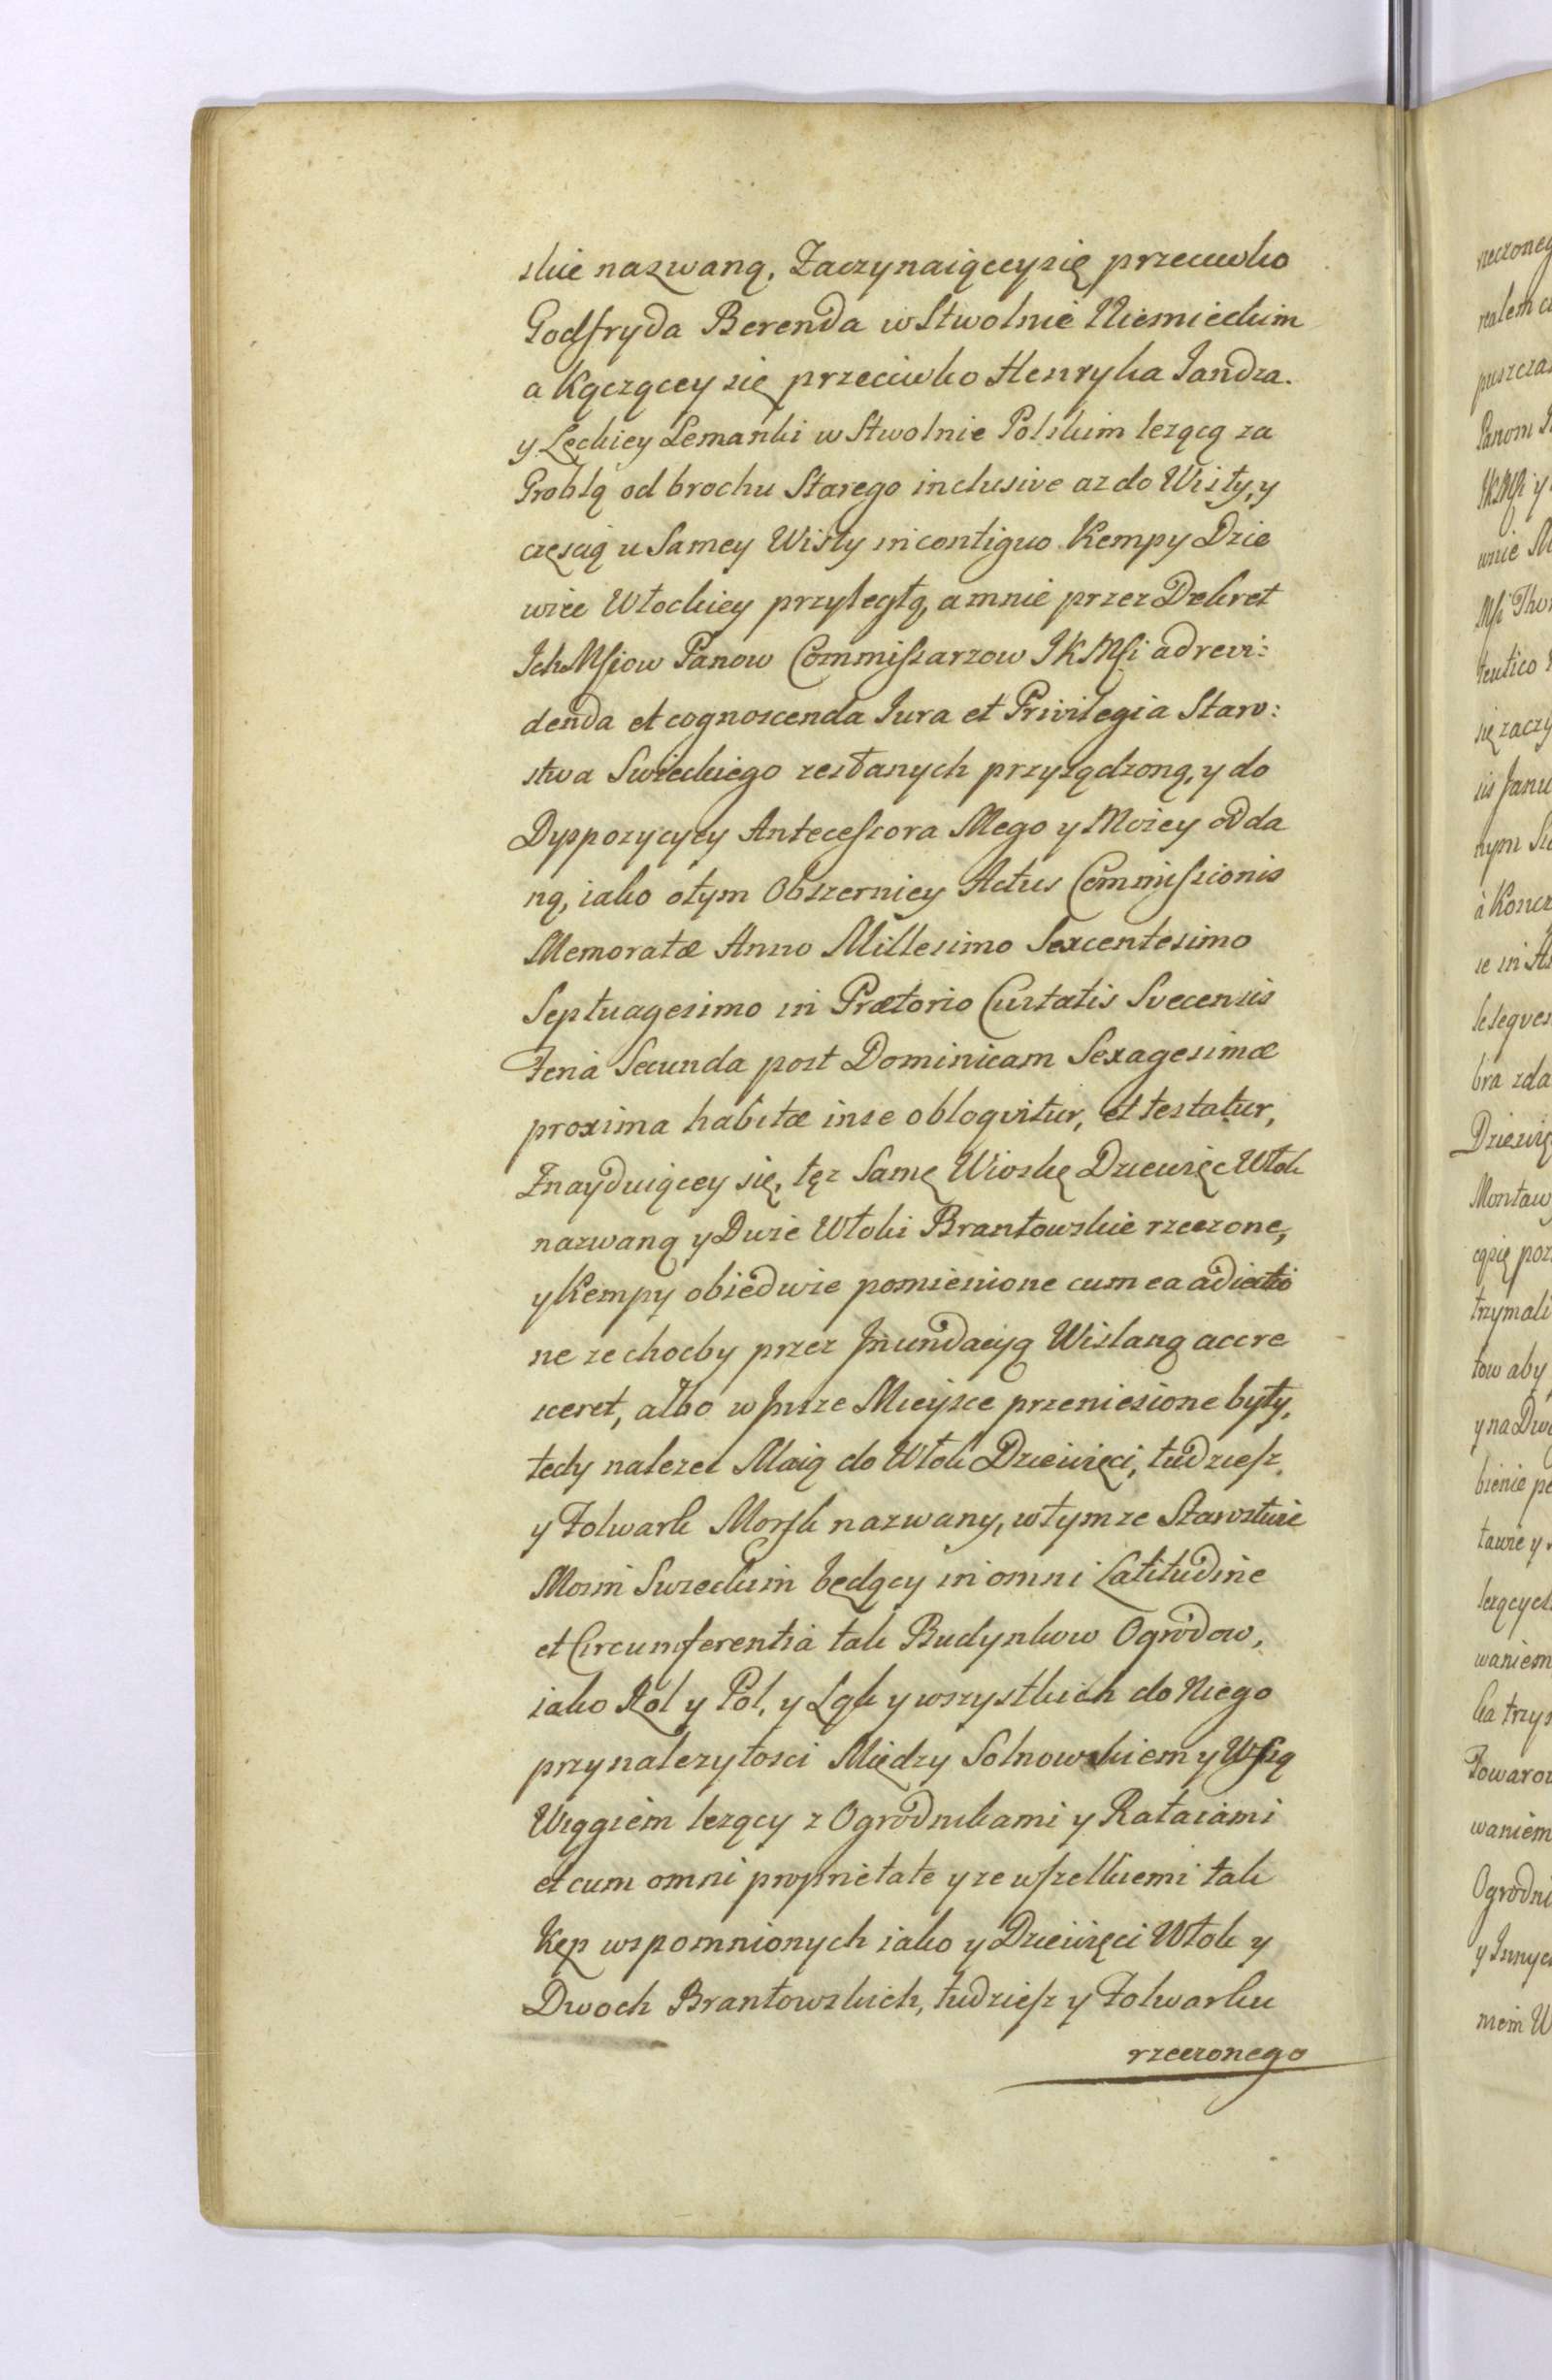 skie nazwaną, Zaczynaiącey się przeciwko
Godfryda Berenda w Stwolnie Niemieckim
a Kączącey się przeciwko Henryka Jandza.
y Lęckiey Lemanki w Stwolnie Polskim lezącą za
Groblą od brochu Starego inclusive az do Wisły, y
częscią u Samey Wisły in contiguo Kempy Dzie
wiec Włockiey przyległą, a mnie przez Dekret
Ich Mſciow Panow Commiſsarzow JK Mſci ad revi:
denda et cognoscenda Iura et Privilegia Staro:
stwa Swieckiego zesłanych przysądzoną, y do
Dyspozycyey Anteceſsora Mego y Moiey odda
ną, iako o tym Obszerniey Actus Commiſsionis
Memoratæ Anno Millesimo Sexcentesimo
Septuagesimo in Prætorio Civitatis Svecensis
Feria Secunda post Dominicam Sexagesimæ
proxima habitæ in se obloqvitur, et testatur,
Znayduiącey się, tęz Samę Wioskę Dziewięc Włok
nazwaną y Dwie Włoki Brantowskie rzeczone,
y Kempy obiedwie pomienione cum ea adiectio
ne ze choćby przez Jnundacyą Wislaną accre
sceret, albo w Jnsze Mieysce przeniesione były,
tedy nalezec Maią do Włok Dziewięci, tudzieſz
y Folwark Morſk nazwany, w tymze Starostwie
Moim Swieckim będący in omni Latitudine
et Circumferentia tak Budynkow Ogrodow,
iako Rol y Pol, y Łąk y wszystkich do Niego
przynalezytosci Między Solnowskiem y Wſią
Wiągiem lezący z Ogrodnikami y Rataiami
et cum omni proprietate y ze wſzelkiemi tak
Kęp wspomnionych iako y Dziewięci Włok y
Dwoch Brantowskich, tudzieſz y Folwarku
rzeczonego